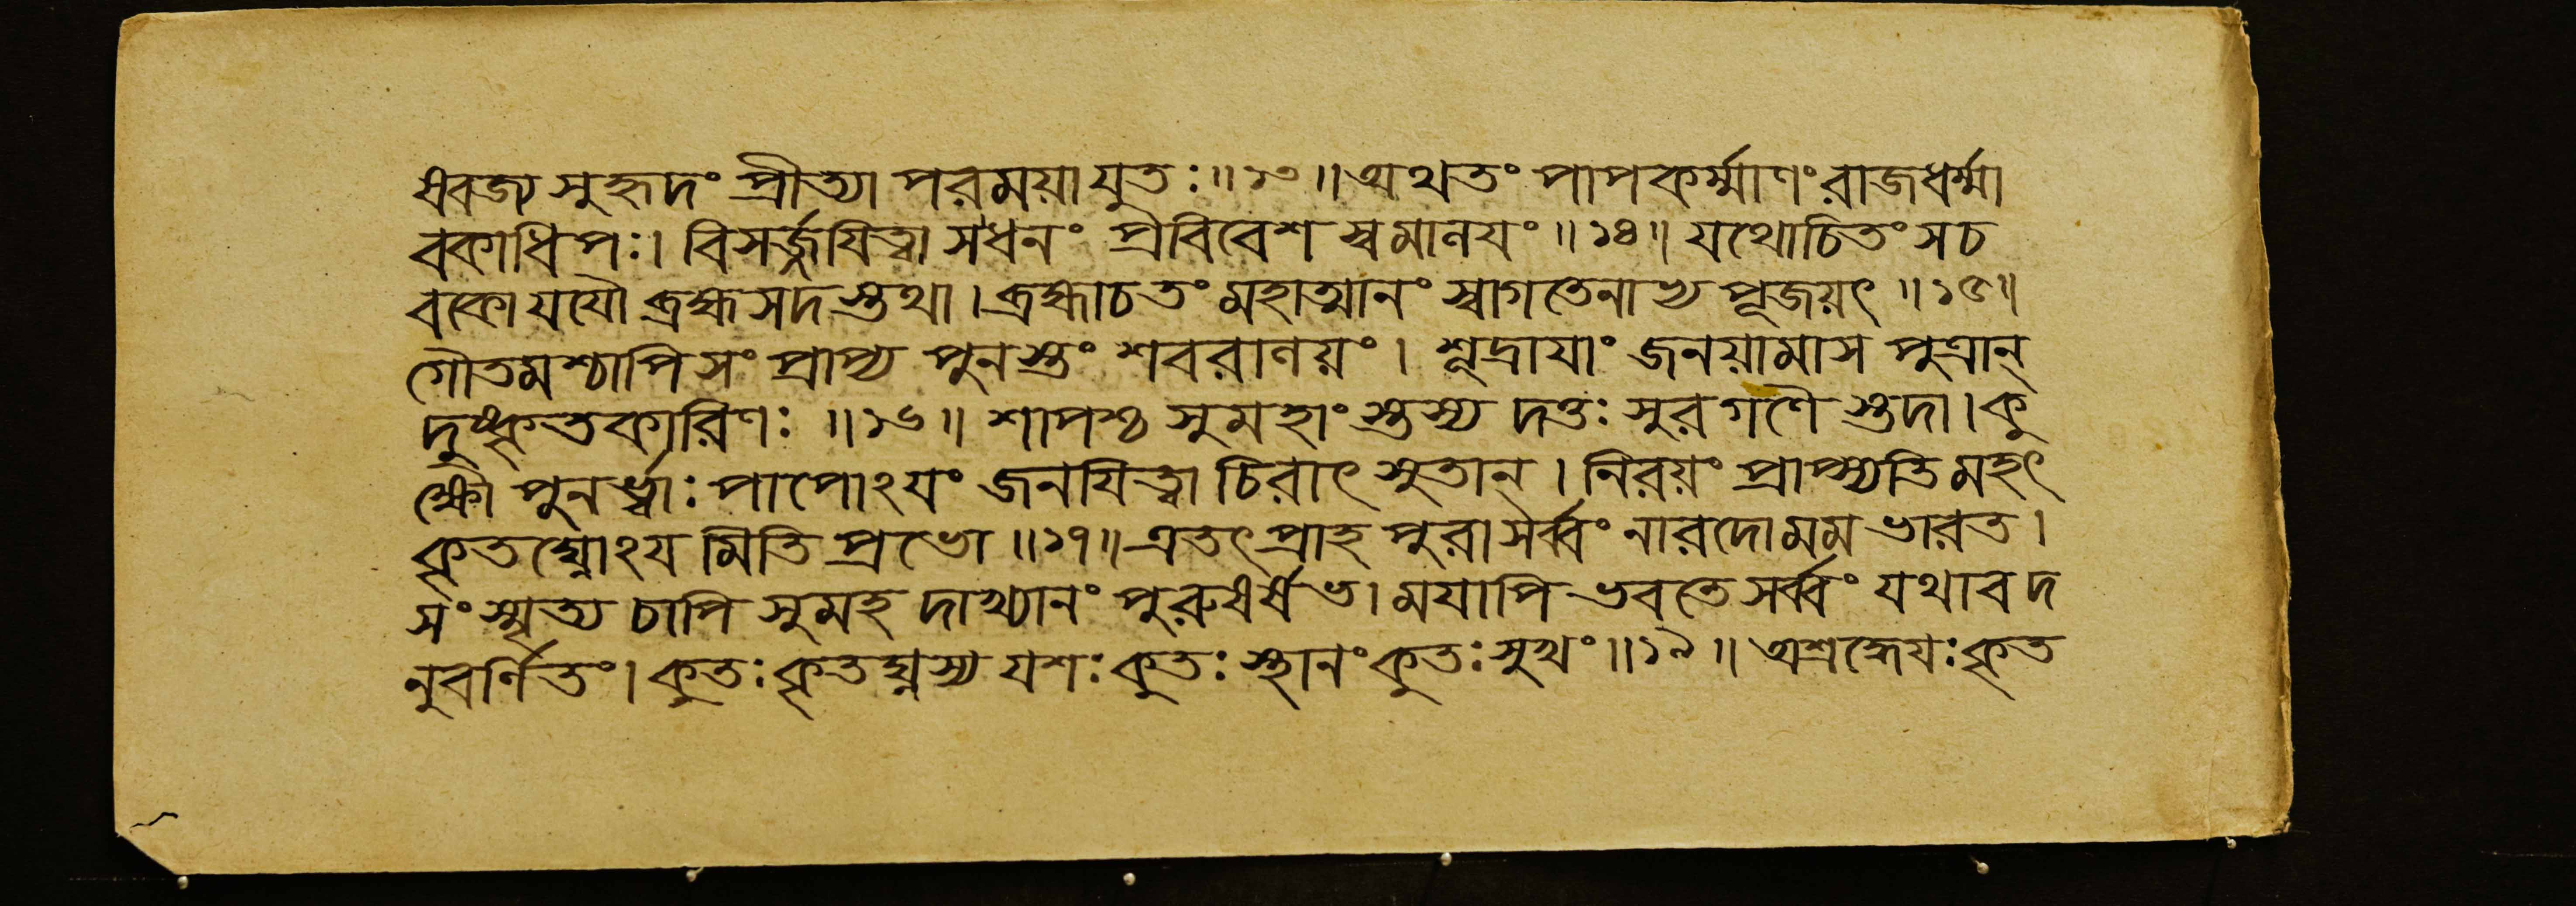 ষ্বজ্য সুহৃদং প্রীত্যা পরময়া যুতঃ ॥ ১৩ ॥ অথ তং পাপকর্ম্মাণং রাজধর্ম্মা
বকাধিপঃ । বিসর্জ্জযিত্বা সধনং প্রবিবেশ স্বমালযং ॥ ১৪ ॥ যথোচিতং স চ
বকো যযৌ ব্রহ্মসদস্তথা । ব্রহ্মা চ তং মহাত্মানং স্বাগতেনাভ্যপূজয়ৎ ॥ ১৫ ॥
গৌতমশ্চাপি সংপ্রাপ্য পুনস্তং শবরালয়ং । শূদ্রাযাং জনয়ামাস পুত্রান্
দুষ্কৃতকারিণঃ ॥ ১৬ ॥ শাপশ্চ সুমহাংস্তস্য দত্তঃ সুরগণৈস্তদা । কু
ক্ষৌ পুনর্ভ্বাঃ পাপোঽযং জনযিত্বা চিরাৎ সুতান্ । নিরয়ং প্রাপ্স্যতি মহৎ
কৃতঘ্নোঽযমিতি প্রভো ॥ ১৭ ॥ এতৎ প্রাহ পুরা সর্ব্বং নারদো মম ভারত ।
সংস্মৃত্য চাপি সুমহদাখ্যানং পুরুষর্ষভ । মযাপি ভবতে সর্ব্বং যথাবদ
নুবর্ণিতং । কুতঃ কৃতঘ্নস্য যশঃ কুতঃ স্থানং কুতঃ সুখং ॥ ১৯ ॥ অশ্রদ্ধেযঃ কৃত